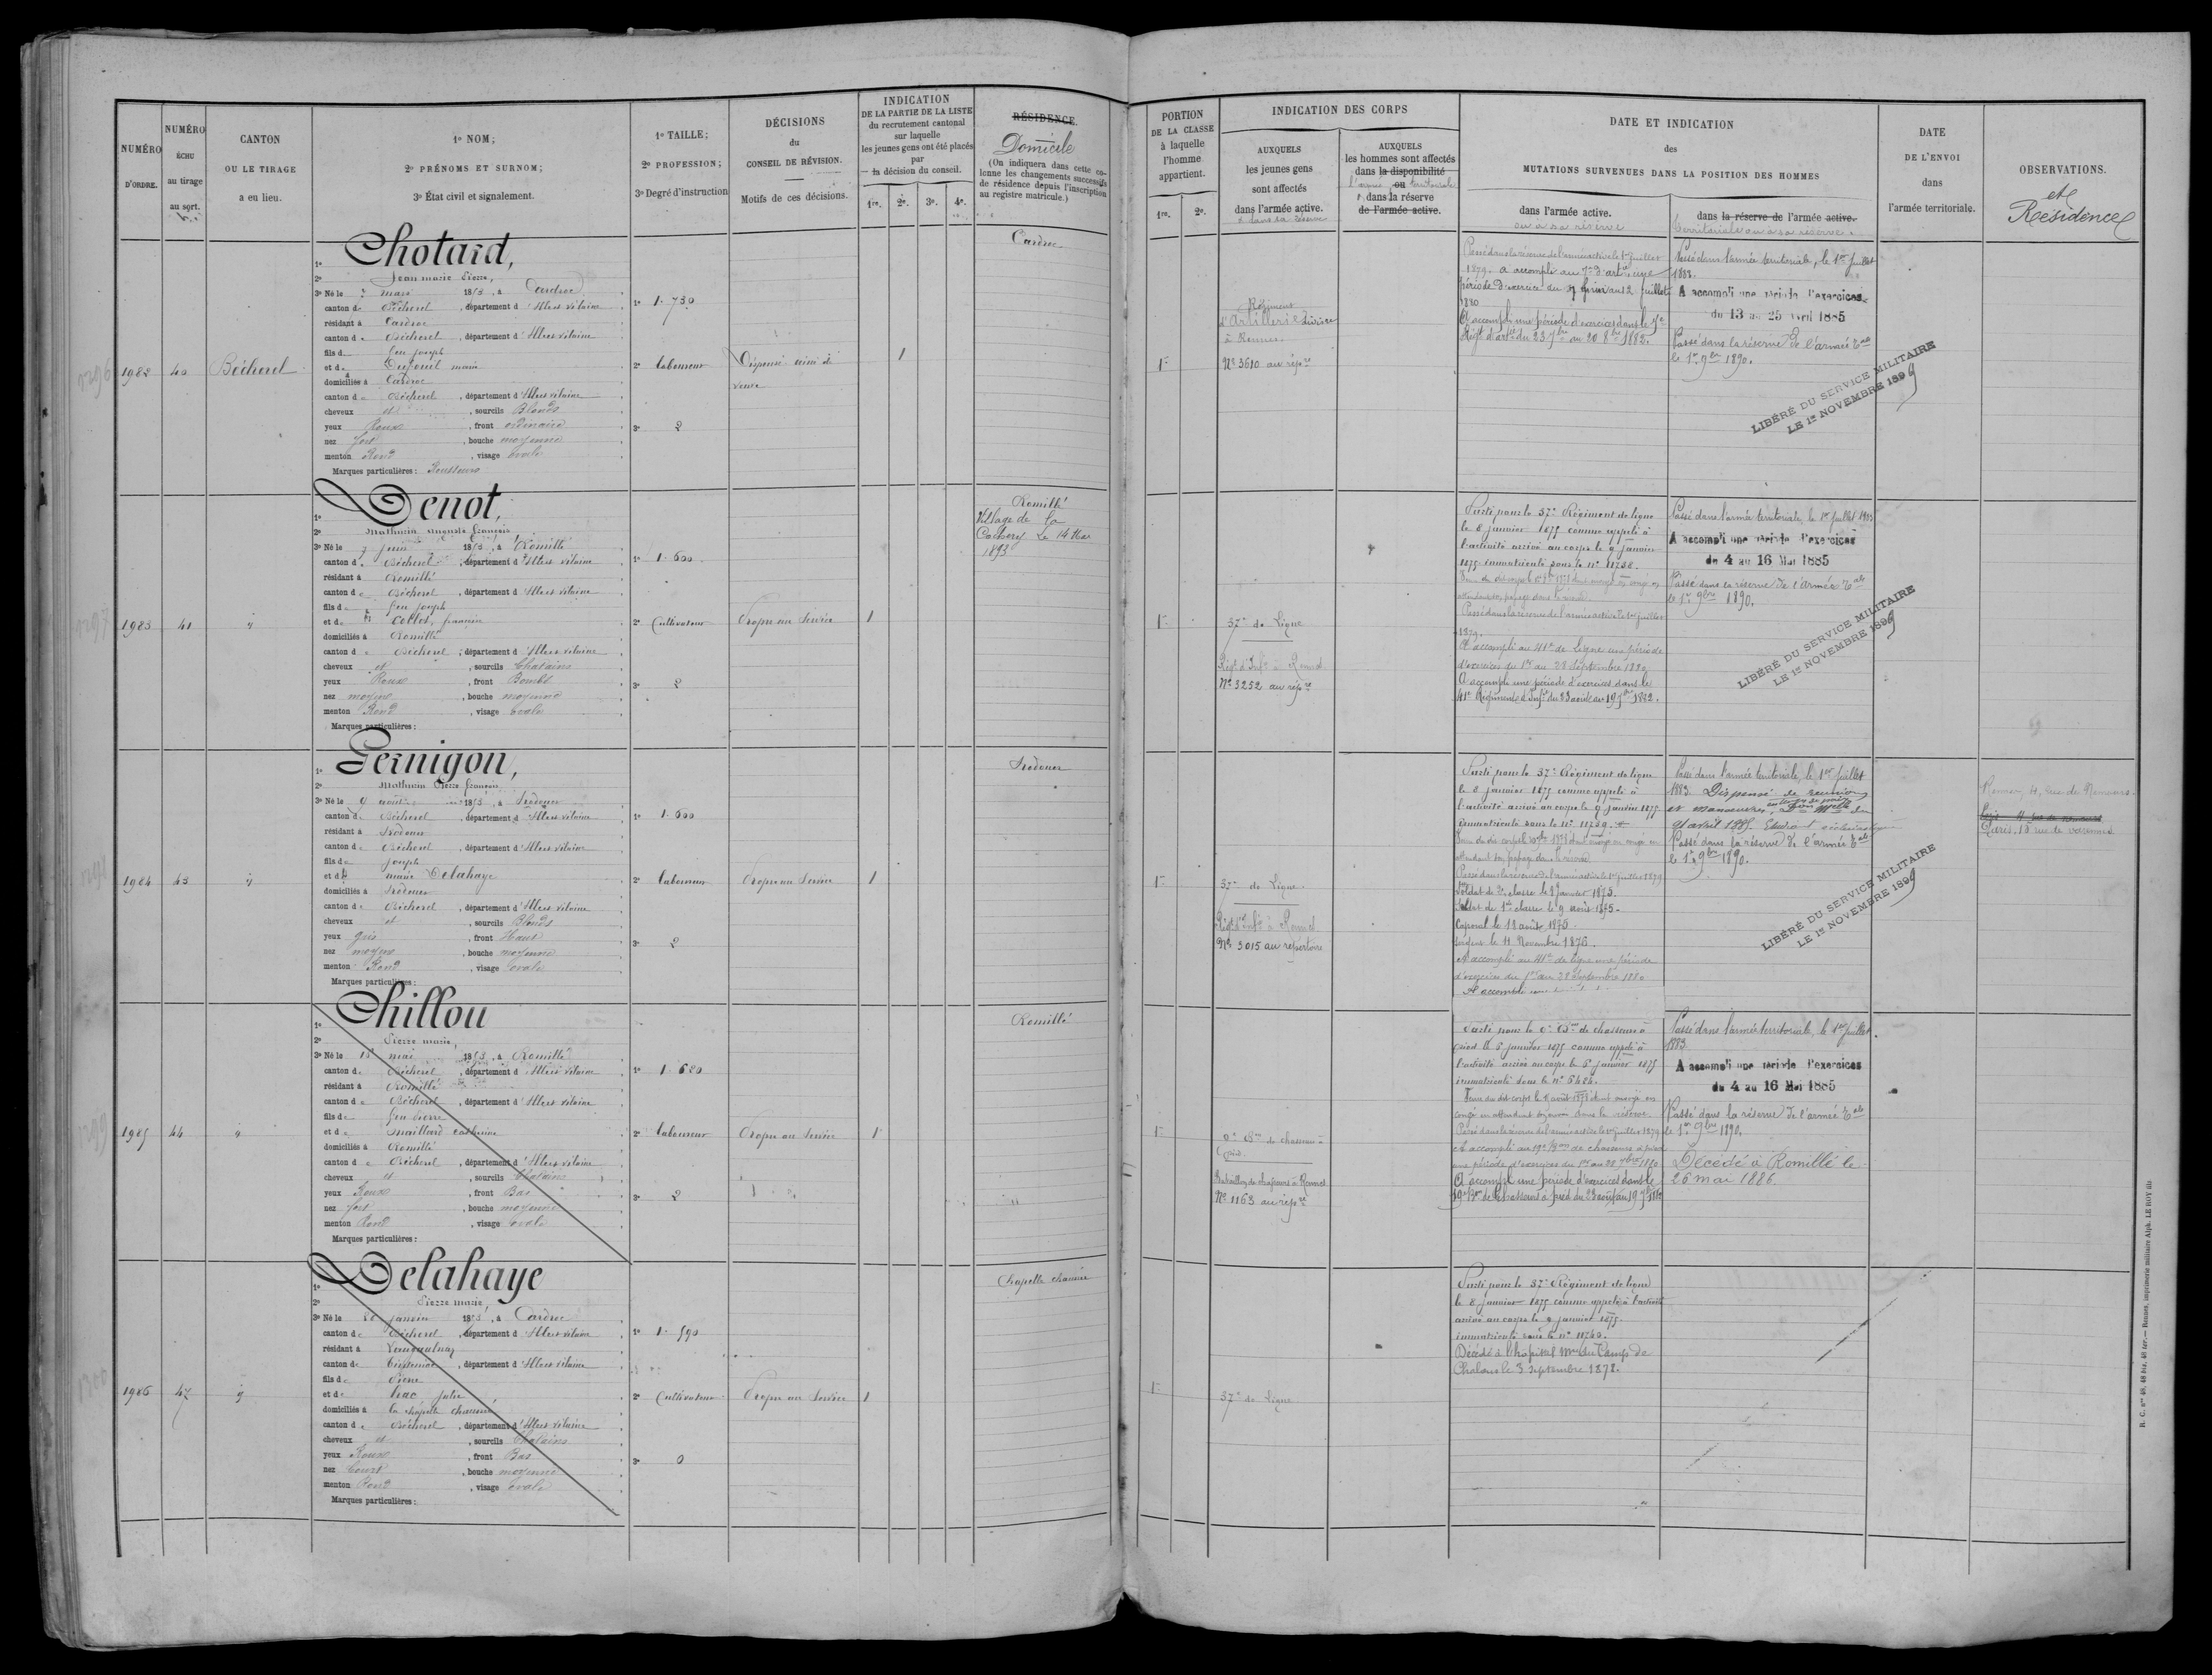 NUMÉRO
D'ORDRE.
NUMÉRO
ÉCHU
au tirage
au sort.
CANTON
OU LE TIRAGE
a eu lieu.
1º NOM;
2º PRÉNOMS ET SURNOM;
3º État civil et signalement.
1º TAILLE;
2º PROFESSION;
3º Degré d'instruction
DÉCISIONS
du
CONSEIL DE RÉVISION.
Motifs de ces décisions.
INDICATION
DE LA PARTIE DE LA LISTE
du recrutement cantonal
sur laquelle
les jeunes gens ont été placés
par
la décision du conseil.
1re. 2e. 3e. 4e.
RÉSIDENCE
Domicile
(On indiquera dans cette co-
lonne les changements successifs
de résidence depuis l'inscription
au registre matricule.)
PORTION
DE LA CLASSE
à laquelle
l'homme
appartient.
1re. 2e.
INDICATION DES CORPS
AUXQUELS
les jeunes gens
sont affectés
dans l'armée active.
AUXQUELS
les hommes sont affectés
dans la disponibilité
ou
dans la réserve
de l'armée active.
DATE ET INDICATION
des
MUTATIONS SURVENUES DANS LA POSITION DES HOMMES
dans l'armée active.
ou à sa réserve
dans la réserve de l'armée active.
territoriale ou à sa réserve.
DATE
DE L'ENVOI
dans
l'armée territoriale.
OBSERVATIONS.
et
Résidence
1982 40 Bécherel
1º Chotard,
2º Jean marie Pierre,
3º Né le mars 1853, à Cardroc
canton de Bécherel, département d'Ille et vilaine
résidant à Cardroc
canton de Bécherel, département d'Ille et vilaine
fils de feu Joseph
et de marie
domiciliés à Cardroc
canton de Bécherel, département d'Ille et vilaine
cheveux et, sourcils Blonds
yeux Roux, front ordinaire
nez fort, bouche moyenne
menton Rond, visage ovale
Marques particulières: Rousseurs
1º 1.730
2º laboureur
3º 2
Dispensé
veuve
1
Cardroc
1re
Régiment
d'Artillerie
à Rennes.
Nº 3610 au répre
Passé dans la réserve de l'armée active le 1er juillet
1879. a accompli au
période d'exercice du juin au 2 juillet
1880
A accompli une période d'exercices dans le
Régt d'artie du 23 7bre au 20 8bre 1882.
Passé dans l'armée territoriale, le 1er juillet
1883.
A accompli une période d'exercices
du 13 au 25 Avril 1885
Passé dans la réserve de l'armée tale
le 1er 9bre 1890.
LIBÉRÉ DU SERVICE MILITAIRE
LE 1er NOVEMBRE 1899
1983 41 "
1º Denot,
2º Mathurin Auguste François
3º Né le 7 juin 1853, à Romillé
canton de Bécherel, département d'Ille et vilaine
résidant à Romillé
canton de Bécherel, département d'Ille et vilaine
fils de feu Joseph
et de Collet, françoise
domiciliés à Romillé
canton de Bécherel, département d'Ille et vilaine
cheveux et, sourcils Chatains
yeux Roux, front Bombé
nez moyen, bouche moyenne
menton Rond, visage ovale
Marques particulières:
1º 1.600
2º Cultivateur
3º 2
Propre au Service
1
Romillé
Village de la
Le 14 Mai
1893
1re
37e de Ligne
Régt d'Infie à Rennes
Nº 3252 au répre
Parti pour le 37e Régiment de ligne
le 8 janvier 1875 comme appelé à
l'activité arrivé au corps le 9 janvier
1875 immatriculé sous le nº 11738.
Passé dans la réserve de l'armée active le 1er juillet
1879.
A accompli au 41e de Ligne une période
d'exercices du 1er au 28 Septembre 1880
A accompli une période d'exercices dans le
41e Régiment d'Infie du 23 août au 19 7bre 1882.
Passé dans l'armée territoriale, le 1er juillet 1883
A accompli une période d'exercices
du 4 au 16 Mai 1885
Passé dans la réserve de l'armée tale
le 1er 9bre 1890.
LIBÉRÉ DU SERVICE MILITAIRE
LE 1er NOVEMBRE 1899
1984 43 "
1º Gernigon,
2º Mathurin Pierre François
3º Né le 9 août 1853, à Irodouer
canton de Bécherel, département d'Ille et vilaine
résidant à Irodouer
canton de Bécherel, département d'Ille et vilaine
fils de Joseph
et de marie Delahaye
domiciliés à Irodouer
canton de Bécherel, département d'Ille et vilaine
cheveux et, sourcils Blonds
yeux gris, front Haut
nez moyen, bouche moyenne
menton Rond, visage ovale
Marques particulières:
1º 1.600
2º laboureur
3º 2
Propre au Service
1
Irodouer
1re
37e de Ligne.
Régt d'Infie à Rennes
Nº 3015 au répertoire
Parti pour le 37e Régiment de ligne
le 8 janvier 1875 comme appelé à
l'activité arrivé au corps le 9 janvier 1875
immatriculé sous le nº 11739.
Passé dans la réserve de l'armée active le 1er juillet 1879
Soldat de 2e classe le 9 Janvier 1875.
Soldat de 1re classe le 9 août 1875.
Caporal le 18 août 1875.
Sergent le 11 Novembre 1876.
A accompli au 41e de ligne une période
d'exercices du 1er au 28 Septembre 1880
A accompli une
Passé dans l'armée territoriale, le 1er juillet
1883. Dispensé de réunions
et manœuvres,
21 avril 1885. Etudiant ecclésiastique
Passé dans la réserve de l'armée tale
le 1er 9bre 1890.
LIBÉRÉ DU SERVICE MILITAIRE
LE 1er NOVEMBRE 1899
Rennes, 4, rue de
Paris, 18 rue de
1985 44 "
1º Chillou
2º Pierre marie,
3º Né le 15 mai 1853, à Romillé
canton de Bécherel, département d'Ille et vilaine
résidant à Romillé
canton de Bécherel, département d'Ille et vilaine
fils de feu Pierre
et de Maillard catherine
domiciliés à Romillé
canton de Bécherel, département d'Ille et vilaine
cheveux et, sourcils Chatains
yeux Roux, front Bas
nez fort, bouche moyenne
menton Rond, visage ovale
Marques particulières:
1º 1.680
2º laboureur
3º 2
Propre au Service
1
Romillé
1re
Bon de chasseurs à
pied.
Bataillon de chasseurs à Rennes
Nº 1163 au répre
Parti pour le Bon de chasseurs à
pied le 8 janvier 1875 comme appelé à
l'activité arrivé au corps le 8 janvier 1875
immatriculé sous le nº 5484.
Passé dans la réserve de l'armée active le 1er juillet 1879
A accompli au 19e Bon de chasseurs à pied
une période d'exercices du 1er au 28 7bre 1880
A accompli une période d'exercices dans le
19e Bon de chasseurs à pied du 23 août au 19 7bre 1882
Passé dans l'armée territoriale, le 1er juillet
1883
A accompli une période d'exercices
du 4 au 16 Mai 1885
Passé dans la réserve de l'armée tale
le 1er 9bre 1890.
Décédé à Romillé le
26 mai 1886.
1986 47 "
1º Delahaye
2º Pierre marie,
3º Né le janvier 1853, à Cardroc
canton de Bécherel, département d'Ille et vilaine
résidant à Langaulnay
canton de Tinténiac, département d'Ille et vilaine
fils de Pierre
et de julie
domiciliés à la chapelle chaussée
canton de Bécherel, département d'Ille et vilaine
cheveux et, sourcils Chatains
yeux Roux, front Bas
nez Court, bouche moyenne
menton Rond, visage ovale
Marques particulières:
1º 1.590
2º Cultivateur
3º 0
Propre au Service
1
Chapelle chaussée
1re
37e de Ligne
Parti pour le 37e Régiment de ligne
le 8 janvier 1875 comme appelé à l'activité
arrivé au corps le 9 janvier 1875.
immatriculé sous le nº 11740.
Décédé à l'hôpital Mre du Camp de
Chalons le 3 Septembre 1878.